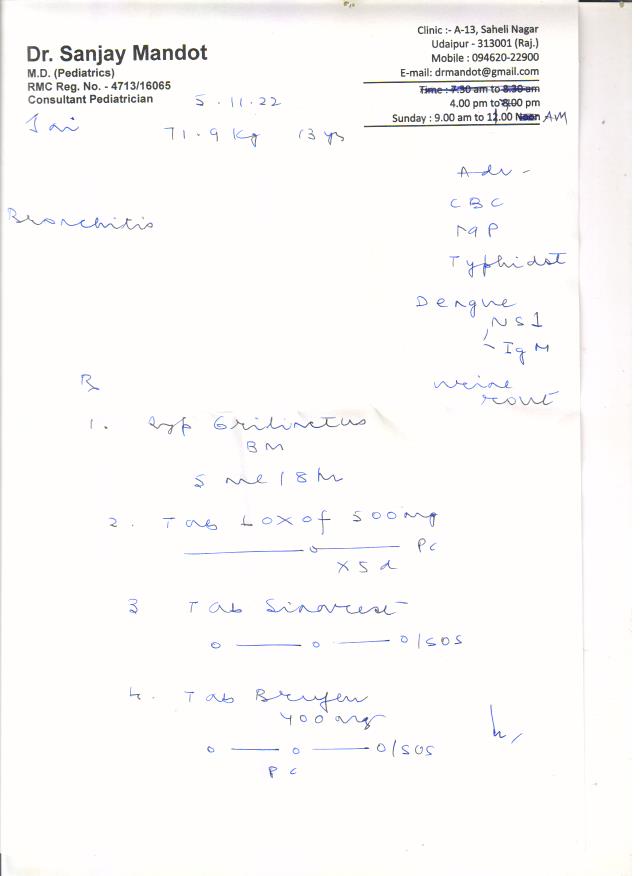 Dr. Sanjay Mandot
M.D. (Pediatrics)
RMC Reg. No. - 4713/16065
Consultant Pediatrician
Clinic :- A-13, Saheli Nagar
Udaipur - 313001 (Raj.)
Mobile : 094620-22900
E-mail: drmandot@gmail.com
Time : 7.30 am to 8.30 am
4.00 pm to 8.00 pm
Sunday : 9.00 am to 12.00 Noon AM
5.11.22
Jai
71.9 Kg 13 yrs
Adv -
CBC
Bronchitis
Typhidot
Dengue
NS1
IgM
urine
rout
Rx
1. Syp Grilinctus
BM
5 ml / 8 hr
2. Tab LOXof 500mg
o PC
X 5 d
3 Tab Sinarest
o — o — o/SOS
4. Tab Brufen
400 mg
o — o — o/SOS
PC